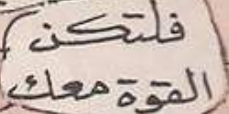 فلتكن
القوة معك